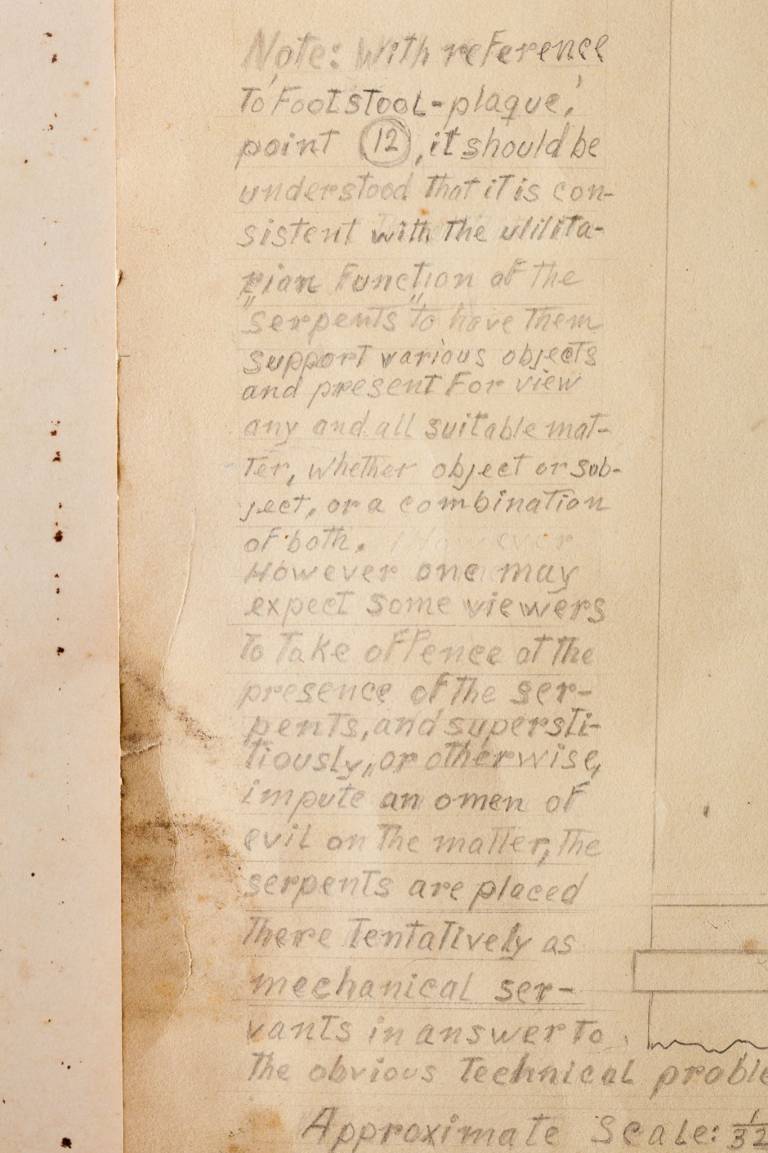 Note: With reference
To 'Footstool-plaque,'
point (12), it should be
understood that it is con-
sistent with the utilita-
rian function of the
"serpents" to have them
support various objects
and present for view
any and all suitable mat-
ter, whether object or sub-
ject, or a combination
of both.
However one may
expect some viewers
to take offence at the
presence of the ser-
pents, and supersti-
tiously, or otherwise,
impute an omen of
evil on the matter, the
serpents are placed
there tentatively as
mechanical ser-
vants in answer to
the obvious technical proble
Approximate Scale: 1/32